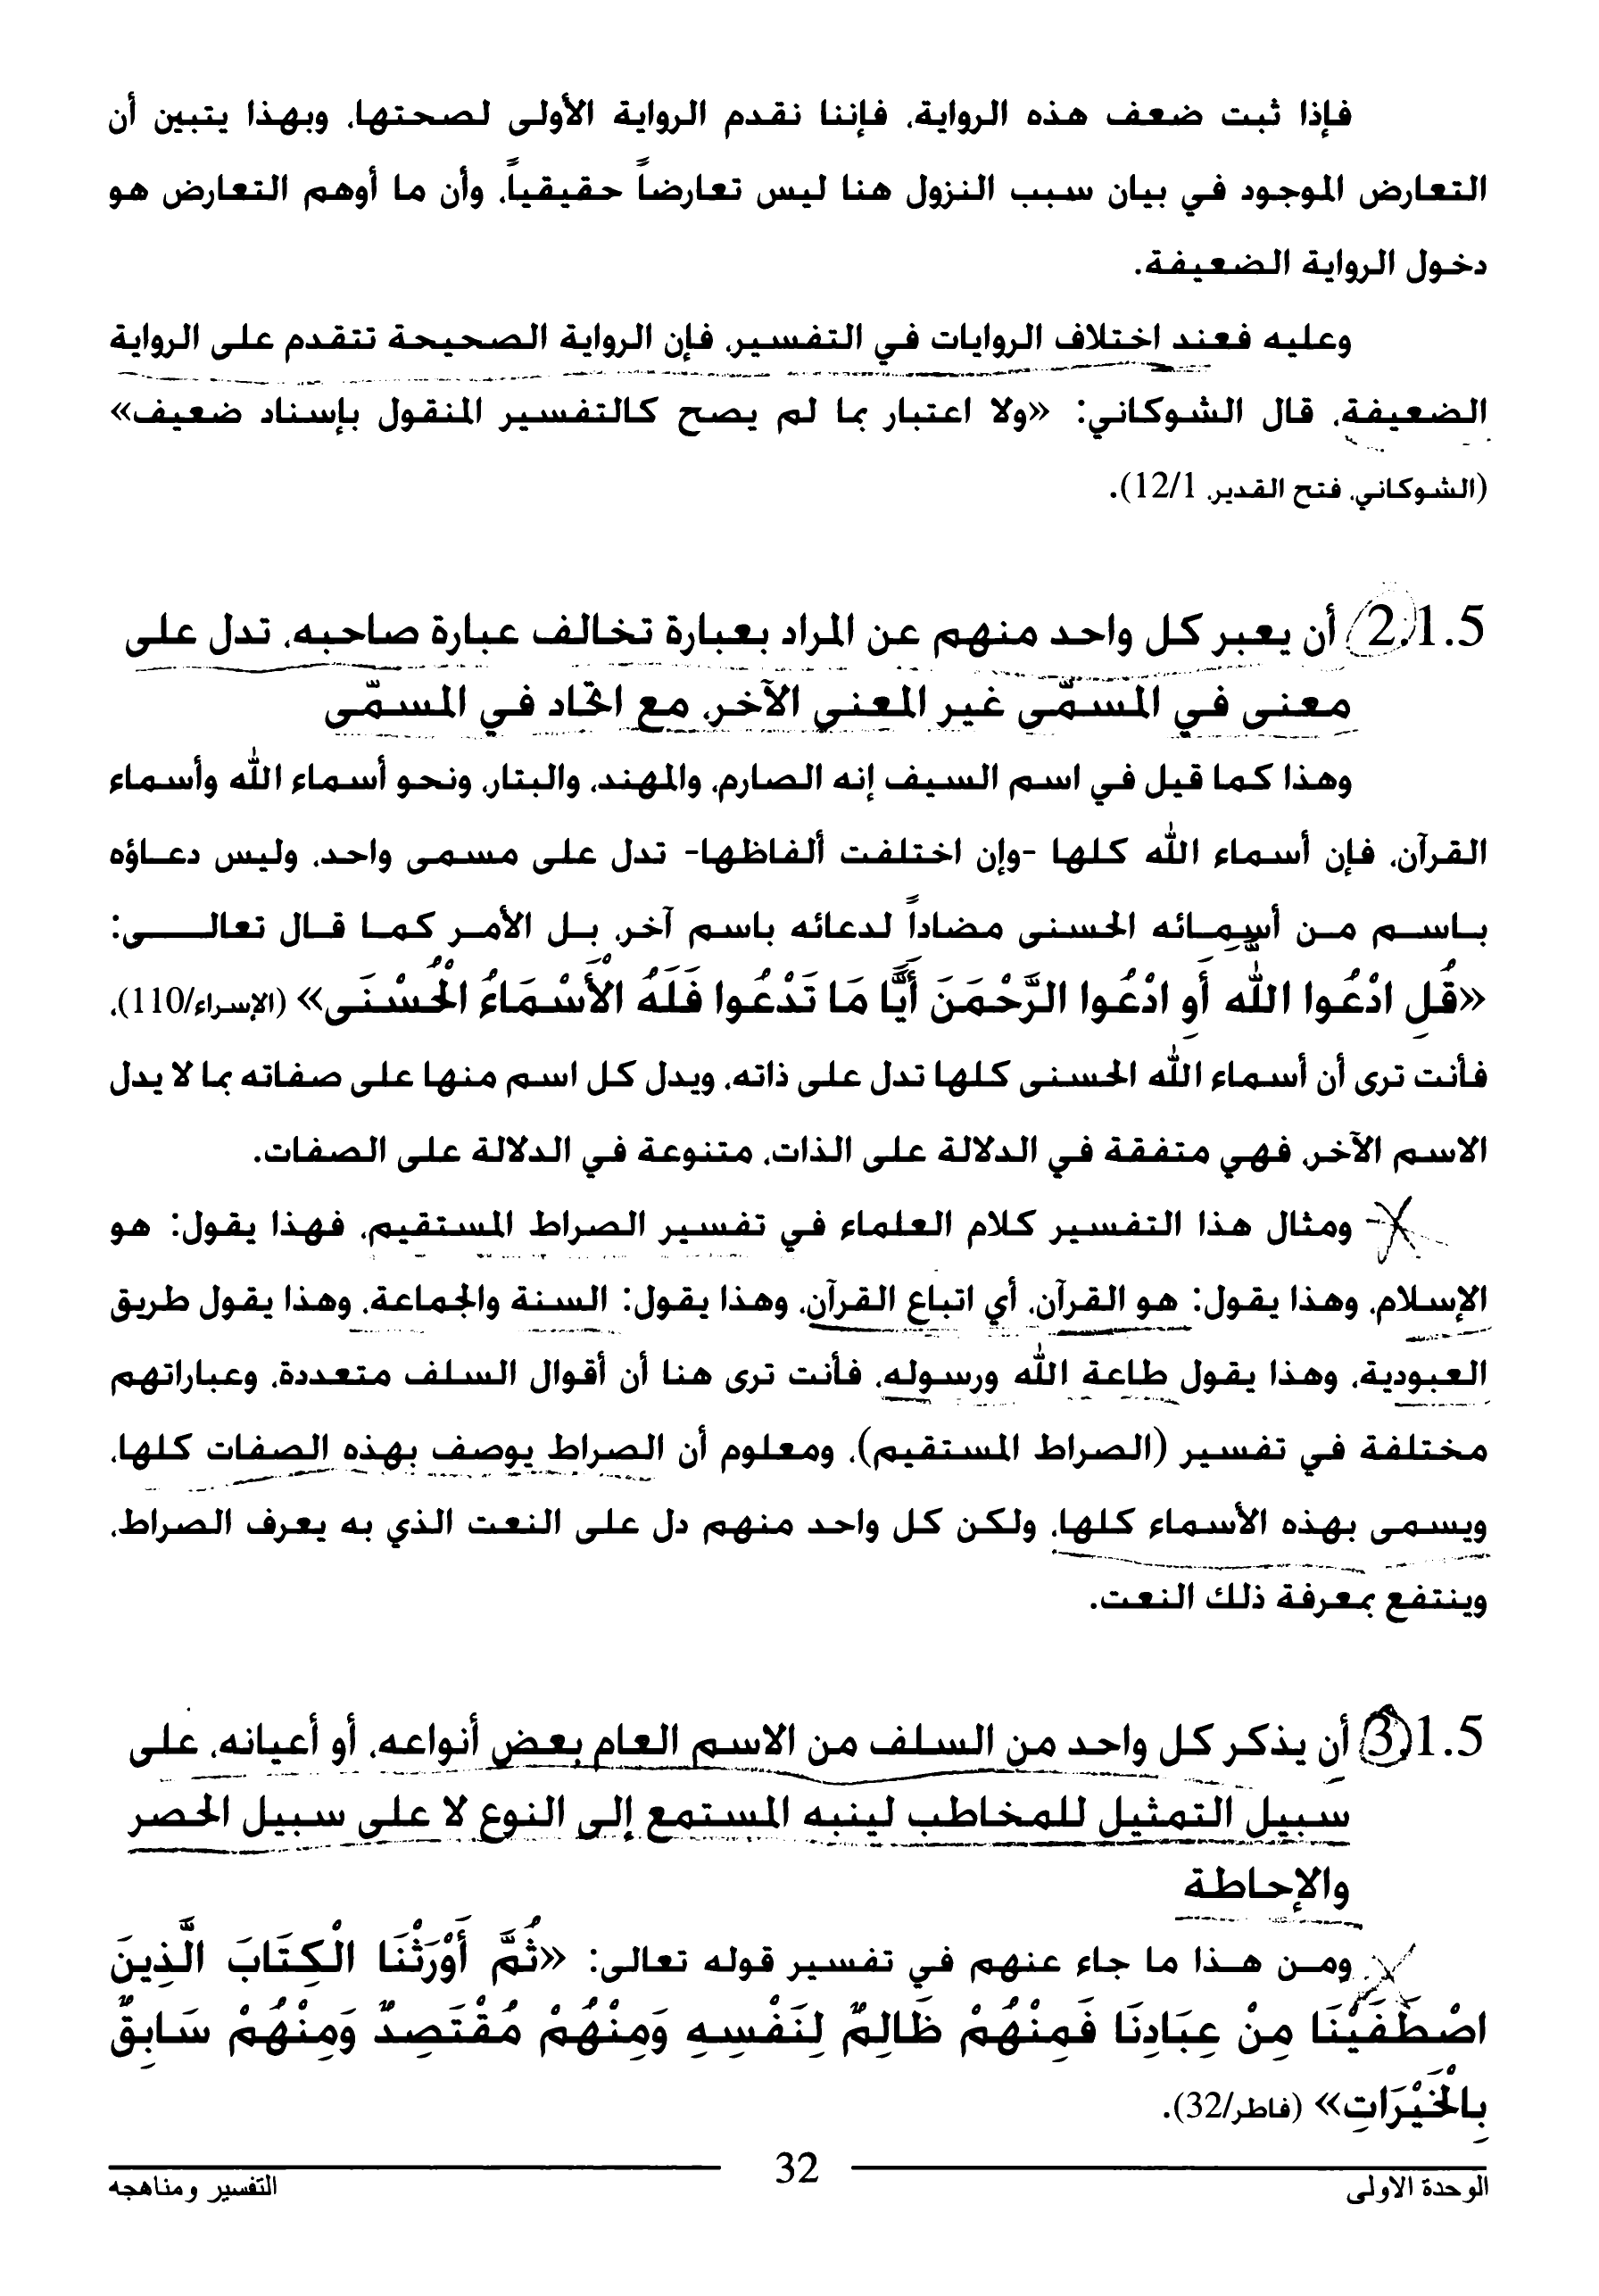 فإذا ثبت ضعف هذه الرواية، فإننا نقدم الرواية الأولى لصحتها، وبهذا يتبين أن
التعارض الموجود في بيان سبب النزول هنا ليس تعارضاً حقيقياً، وأن ما أوهم التعارض هو
دخول الرواية الضعيفة.
وعليه فعند اختلاف الروايات في التفسير، فإن الرواية الصحيحة تتقدم على الرواية
الضعيفة، قال الشوكاني: «ولا اعتبار بما لم يصح كالتفسير المنقول بإسناد ضعيف»
(الشوكاني، فتح القدير، 12/1).
2.1.5 أن يعبر كل واحد منهم عن المراد بعبارة تخالف عبارة صاحبه، تدل على
معنى في المسمّى غير المعنى الآخر، مع اتحّاد في المسمّى
وهذا كما قيل في اسم السيف إنه الصارم، والمهند، والبتار، ونحو أسماء الله وأسماء
القرآن، فإن أسماء الله كلها -وإن اختلفت ألفاظها- تدل على مسمى واحد، وليس دعاؤه
باسم من أسمائه الحسنى مضاداً لدعائه باسم آخر، بل الأمر كما قال تعالى:
«قُلِ ادْعُوا اللّه أَوِ ادْعُوا الرَّحْمَنَ أَيًّا مَا تَدْعُوا فَلَهُ الْأَسْمَاءُ الْحُسْنَى» (الإسراء/110)،
فأنت ترى أن أسماء الله الحسنى كلها تدل على ذاته، ويدل كل اسم منها على صفاته بما لا يدل
الاسم الآخر، فهي متفقة في الدلالة على الذات، متنوعة في الدلالة على الصفات.
ومثال هذا التفسير كلام العلماء في تفسير الصراط المستقيم، فهذا يقول: هو
الإسلام، وهذا يقول: هو القرآن، أي اتباع القرآن، وهذا يقول: السنة والجماعة، وهذا يقول طريق
العبودية، وهذا يقول طاعة الله ورسوله، فأنت ترى هنا أن أقوال السلف متعددة، وعباراتهم
مختلفة في تفسير (الصراط المستقيم)، ومعلوم أن الصراط يوصف بهذه الصفات كلها،
ويسمى بهذه الأسماء كلها، ولكن كل واحد منهم دل على النعت الذي به يعرف الصراط،
وينتفع بمعرفة ذلك النعت.
3.1.5 أن يذكر كل واحد من السلف من الاسم العام بعض أنواعه، أو أعيانه، على
سبيل التمثيل للمخاطب لينبه المستمع إلى النوع لا على سبيل الحصر
والإحاطة
ومن هذا ما جاء عنهم في تفسير قوله تعالى: «ثُمَّ أَوْرَثْنَا الْكِتَابَ الَّذِينَ
اصْطَفَيْنَا مِنْ عِبَادِنَا فَمِنْهُمْ ظَالِمٌ لِنَفْسِهِ وَمِنْهُمْ مُقْتَصِدٌ وَمِنْهُمْ سَابِقٌ
بِالْخَيْرَاتِ» (فاطر/32).
الوحدة الاولى 32 التفسير ومناهجه